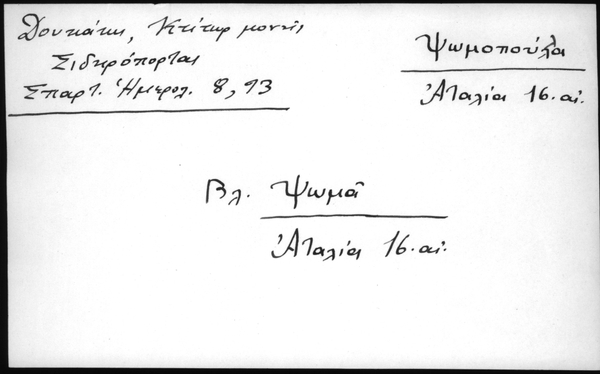 Δουκάκη, Κτίτωρ μονῆς
Σιδηρόπορτας
Σπαρτ. Ἡμερολ. 8, 93
Ψωμοπούλα
Ἀταλία 16. αἰ.
Βλ. Ψωμᾶ
Ἀταλία 16. αἰ.